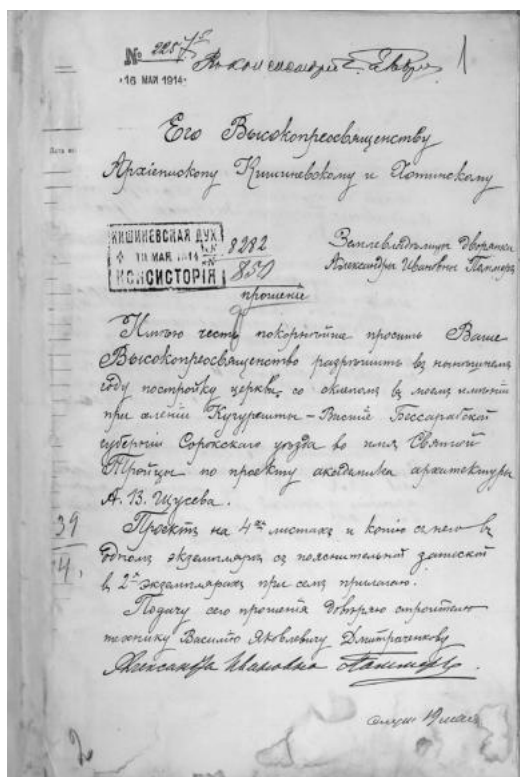 № 2257
16 МАЯ 1914
Въ консисторію
1
Его Высокопреосвященству
Архіепископу Кишиневскому и Хотинскому
КИШИНЕВСКАЯ ДУХ.
МАЯ 1914
КОНСИСТОРІЯ
8282
850
Землевладѣлицы дворянки
Александры Ивановны
прошеніе
Имѣю честь покорнѣйше просить Ваше
Высокопреосвященство разрѣшить въ нынѣшнемъ
году постройку церкви, со склепомъ въ моемъ имѣніи
при селеніи Кугурешты-Высшіе Бессарабской
губерніи Сорокскаго уѣзда во имя Святой
Тройцы по проекту академика архитектуры
А. В. Щусева.
39
4.
Проектъ на 4хъ листахъ и копію съ него въ
одномъ экземплярѣ съ пояснительной запиской
въ 2хъ экземплярахъ при семъ прилагаю.
Подачу сего прошенія довѣряю строителю
технику Василію Яковлевичу Дмитраченкову
Александра Ивановна
19 мая
2